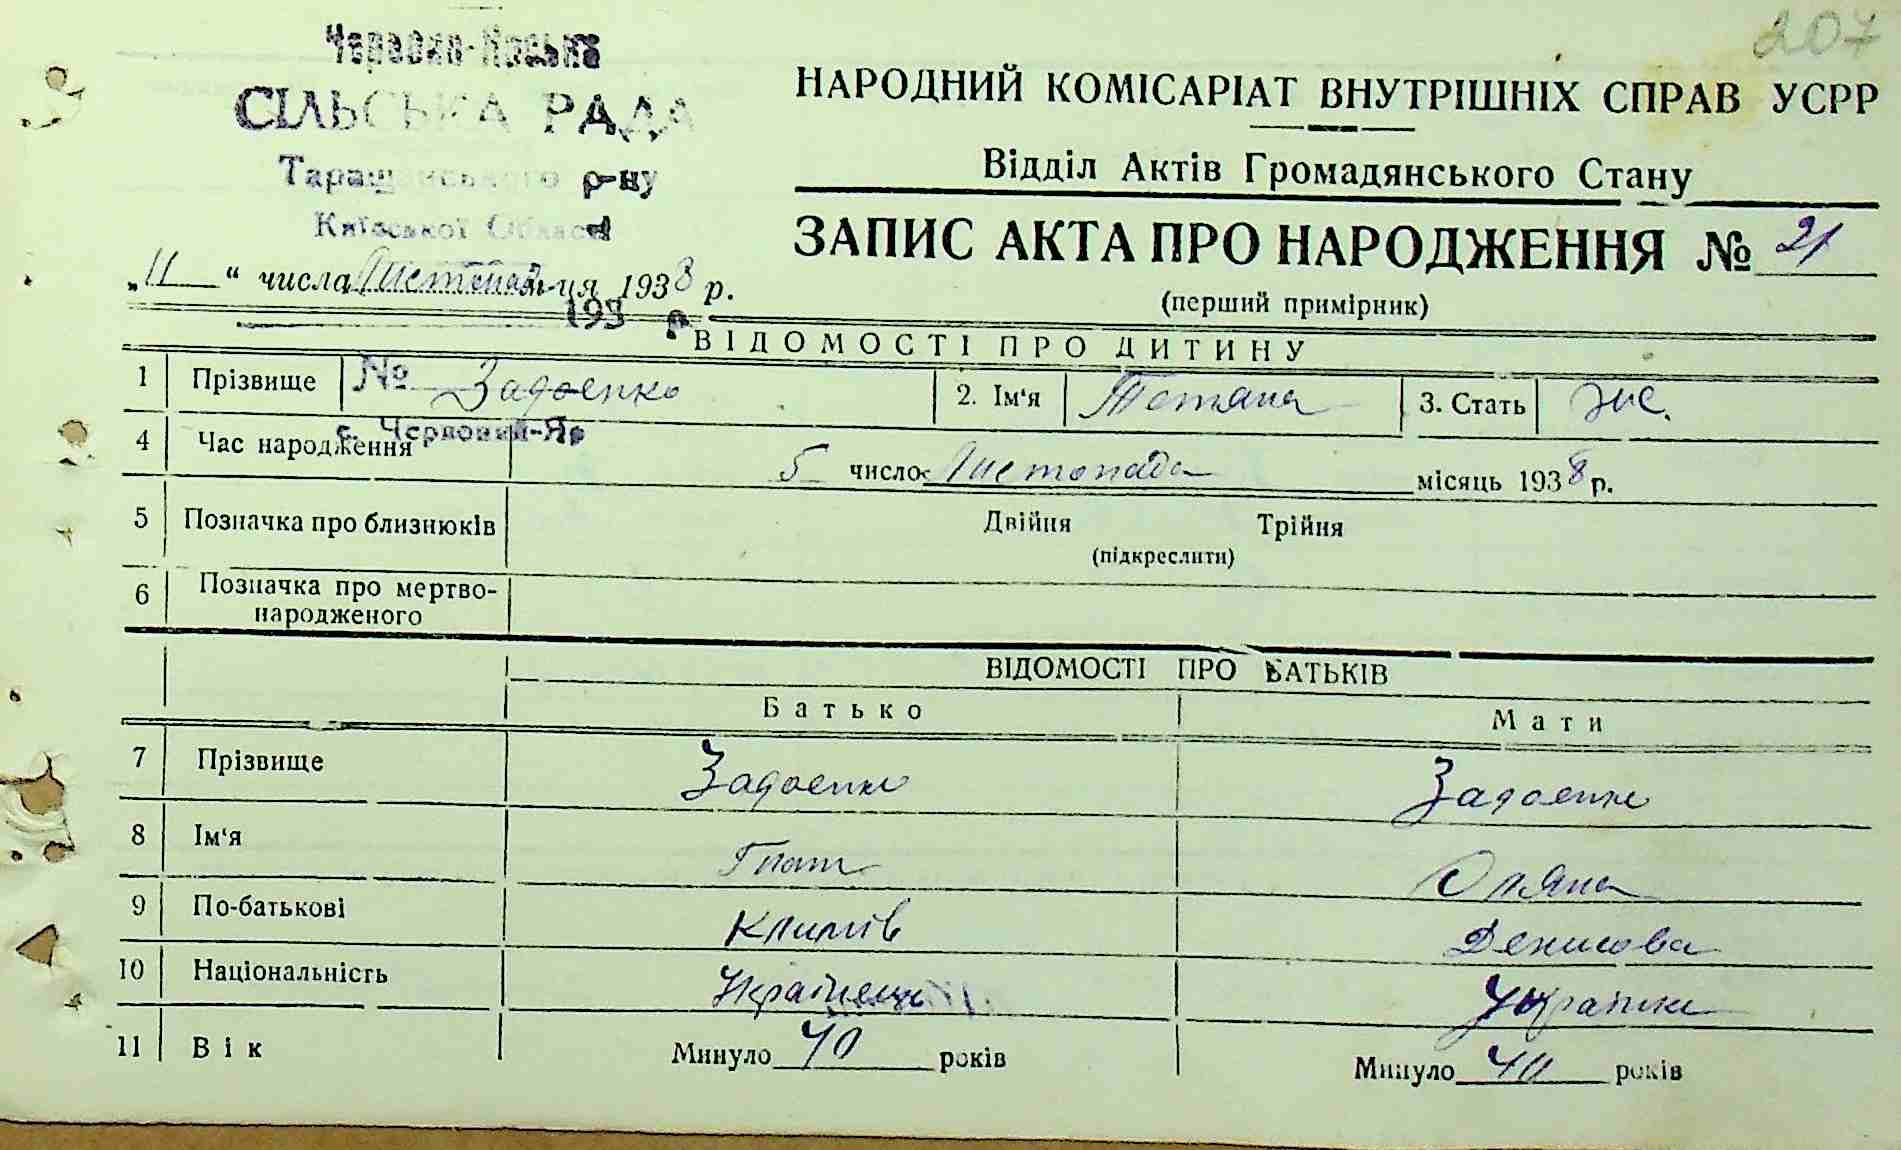 207
Червоно-
СІЛЬСЬКА РАДА
Таращанського р-ну
Київської Области
НАРОДНИЙ КОМІСАРІАТ ВНУТРІШНІХ СПРАВ УСРР
Відділ Актів Громадянського Стану
ЗАПИС АКТА ПРО НАРОДЖЕННЯ № 21
(перший примірник)
„11“ числа Листопад м-ця 1938 р.
193 р.
ВІДОМОСТІ ПРО ДИТИНУ
1 Прізвище № Задоєнко 2. Ім'я Тетяна 3. Стать жіс.
с. Червоний-Яр
4 Час народження 5 число Листопада місяць 1938 р.
5 Позначка про близнюків Двійня Трійня
(підкреслити)
6 Позначка про мертво-
народженого
ВІДОМОСТІ ПРО БАТЬКІВ
Батько Мати
7 Прізвище Задоєнко Задоєнко
8 Ім'я Гнат Оляна
9 По-батькові Климів Денисова
10 Національність Українець Українка
11 Вік Минуло 40 років Минуло 40 років